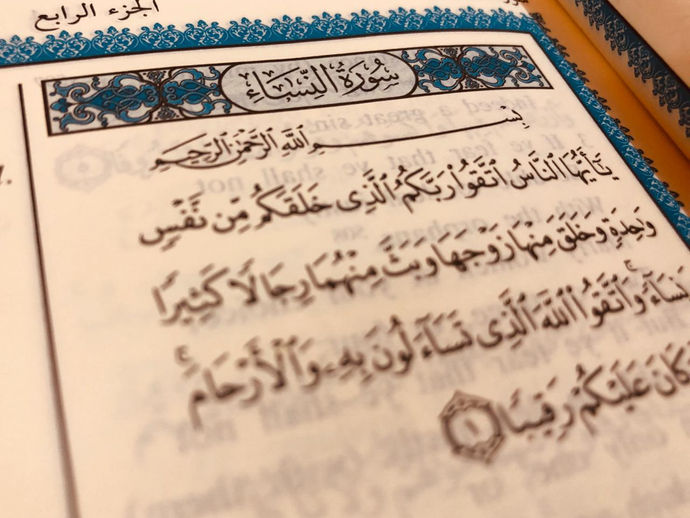 الجزء الرابع
سُورَةُ النِّسَاءِ
بِسْمِ اللَّهِ الرَّحْمَٰنِ الرَّحِيمِ
يَٰٓأَيُّهَا ٱلنَّاسُ ٱتَّقُوا۟ رَبَّكُمُ ٱلَّذِى خَلَقَكُم مِّن نَّفْسٍ
وَٰحِدَةٍ وَخَلَقَ مِنْهَا زَوْجَهَا وَبَثَّ مِنْهُمَا رِجَالًا كَثِيرًا
نِسَآءً ۚ وَٱتَّقُوا۟ ٱللَّهَ ٱلَّذِى تَسَآءَلُونَ بِهِۦ وَٱلْأَرْحَامَ ۚ
كَانَ عَلَيْكُمْ رَقِيبًا ١